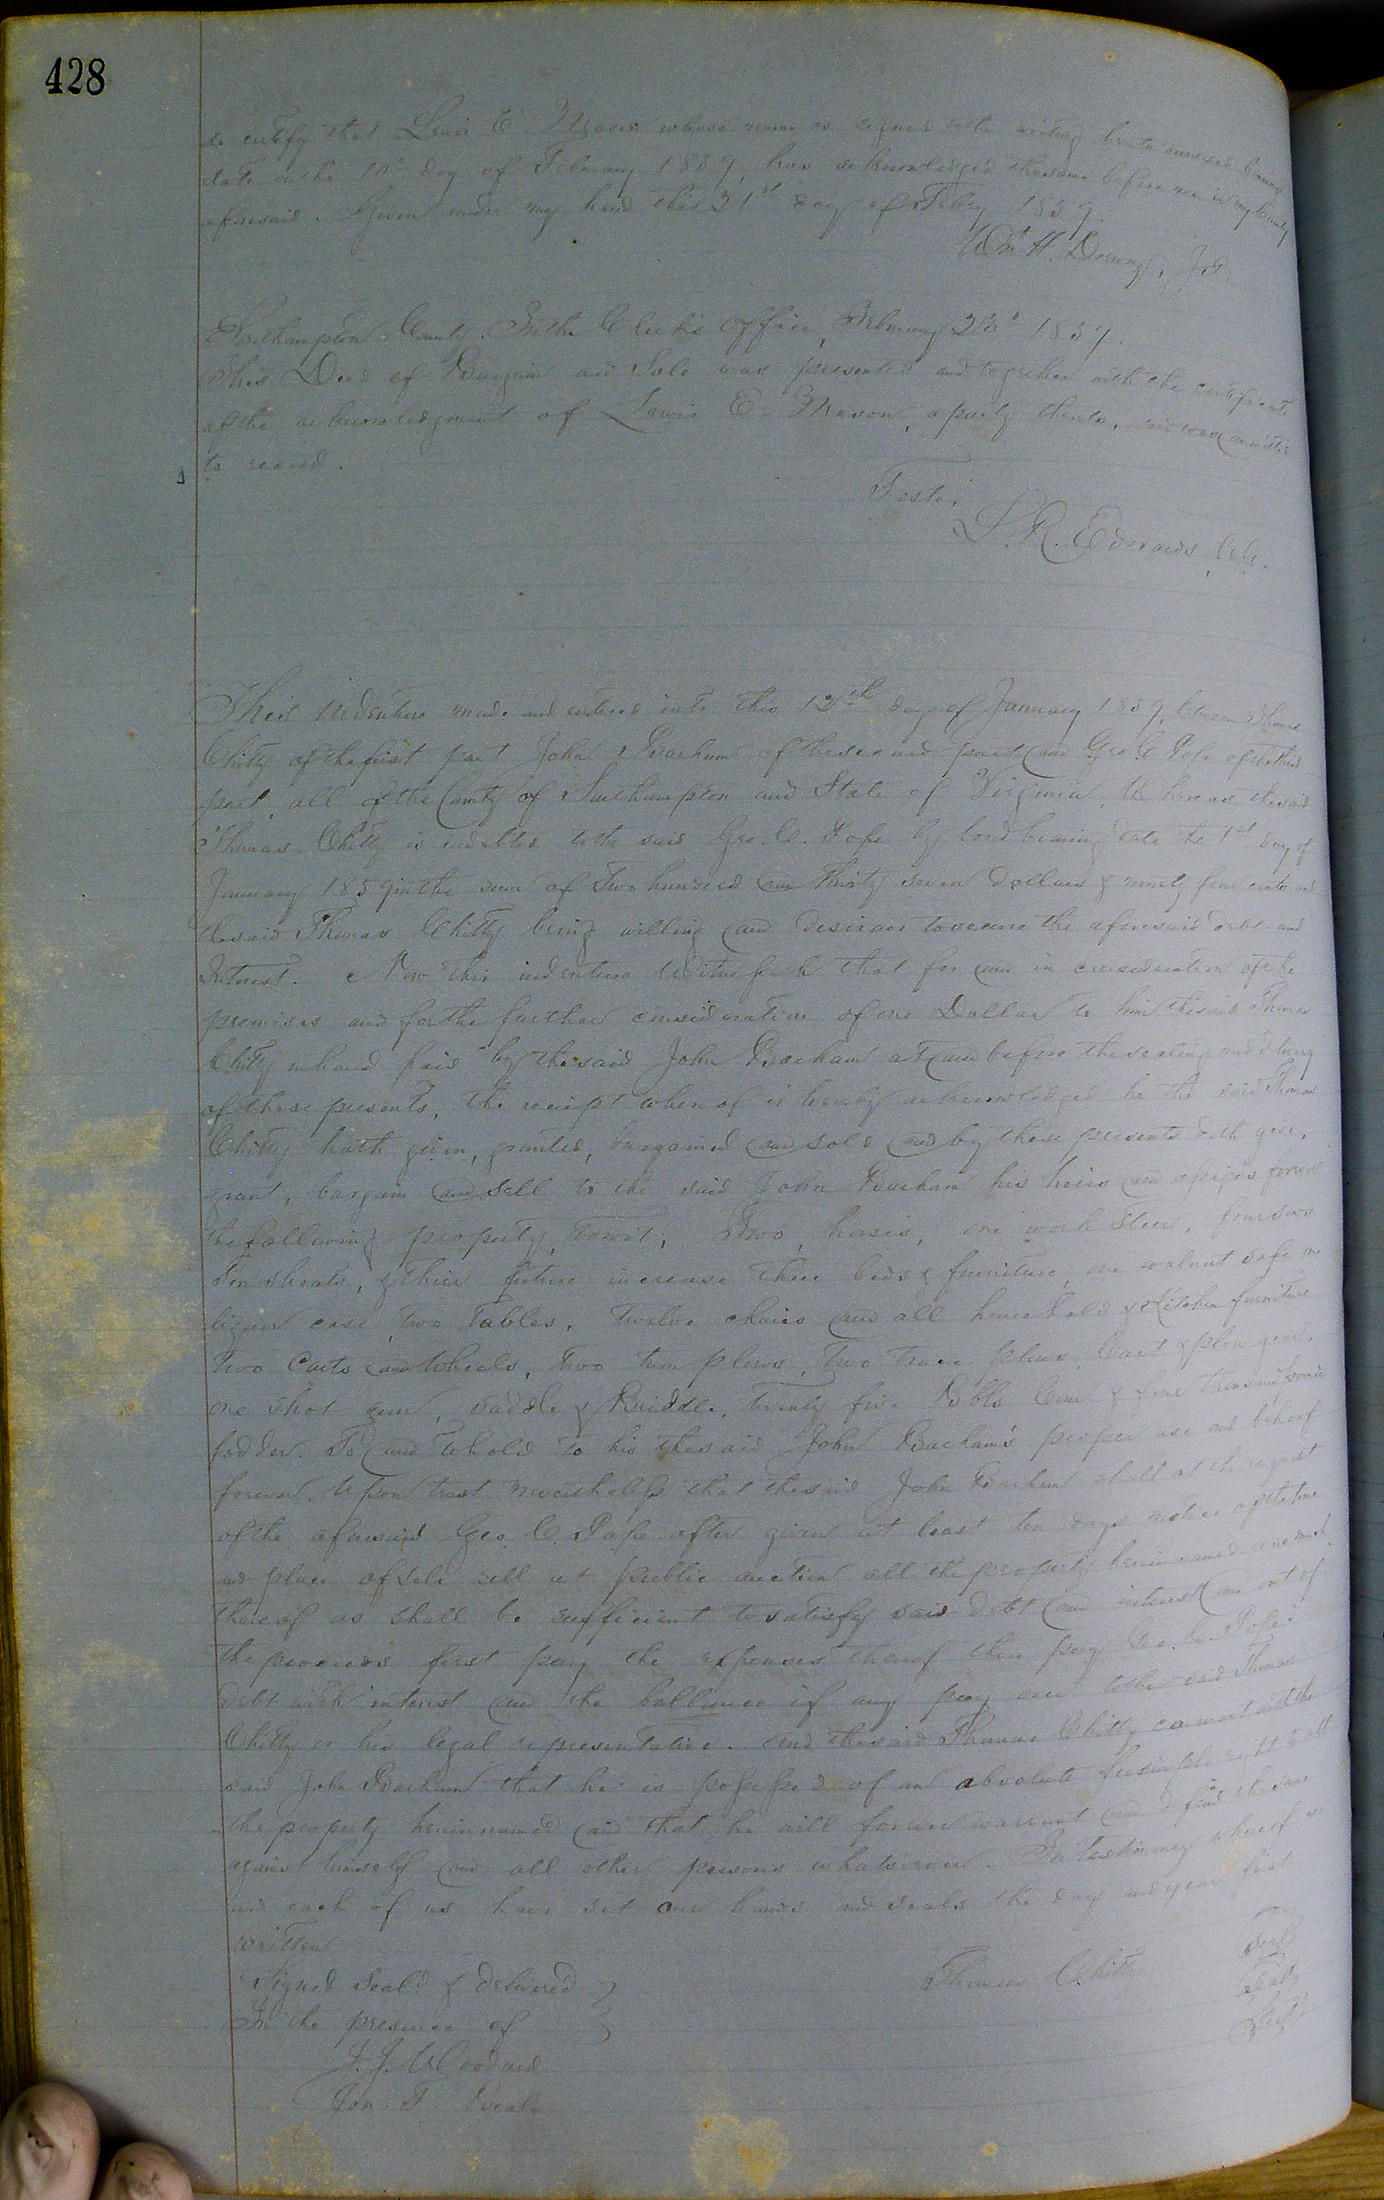 428
do certify that Lewis E. Mason whose name is signed to the writing hereto annexed bearing
date on the 10th day of February 1859, has acknowledged the same before me in my County
aforesaid. Given under my hand this 21st day of Feby 1859.
Wm H. J.P.
Southampton County. In the Clerk's Office, February 23d 1859.
This Deed of Bargain and Sale was presented and together with the certificate
of the acknowledgment of Lewis E. Mason, a party thereto, and was admitted
to record.
Teste,
L. R. Edwards, C.C.
This Indenture made and entered into this 12th day of January 1859, between Thomas
Chitty of the first part John Barham of the second part and Geo. C. Pope of the third
part, all of the County of Southampton and State of Virginia, Whereas the said
Thomas Chitty is indebted to the said Geo. C. Pope by bond bearing date the 1st day of
January 1859 in the sum of Two hundred and thirty seven Dollars & ninety four cents and
the said Thomas Chitty being willing and desirous to secure the aforesaid debt and
Interest. Now this indenture Witnesseth that for and in consideration of the
premises and for the further consideration of one Dollar to him the said Thomas
Chitty in hand paid by the said John Barham at and before the sealing and delivery
of these presents, the receipt whereof is hereby acknowledged he the said Thomas
Chitty hath given, granted, bargained and sold and by these presents doth give,
grant, bargain and sell to the said John Barham his heirs and assigns forever
the following property, towit; Two horses, one work Steer, four sows
Ten shoats, & their future increase three beds & furniture, one walnut safe one
liquor case, two Tables, Twelve chairs and all household & Kitchen furniture
Two Carts and Wheels, Two turn plows, Two Trace plows Cart & plow gear,
one shot gun, saddle & Briddle, twenty five Bbls Corn & four Thousand pounds
fodder. To and to hold to his the said John Barham's proper use and behoof
forever. Upon trust nevertheless that the said John Barham shall at the request
of the aforesaid Geo. C. Pope after given at least ten days notice of the time
and place of sale sell at public auction all the property herein named or so much
thereof as shall be sufficient to satisfy said debt and interest and out of
the proceeds first pay the expenses thereof then pay Geo. C. Pope's
debt with interest and the ballance if any pay over to the said Thomas
Chitty or his legal representative. And the said Thomas Chitty covenant with the
said John Barham that he is possessed of an absolute feesimple right to all
the property herein named and that he will forever warrant and defend the same
against himself and all other persons whatsoever. In Testimony whereof we
and each of us have set our hands and seals the day and year first
written
Signed Seal'd & delivered } Thomas Chitty Seal
In the presence of } Seal
J. J. Woodard Seal
Jon. T. Beale